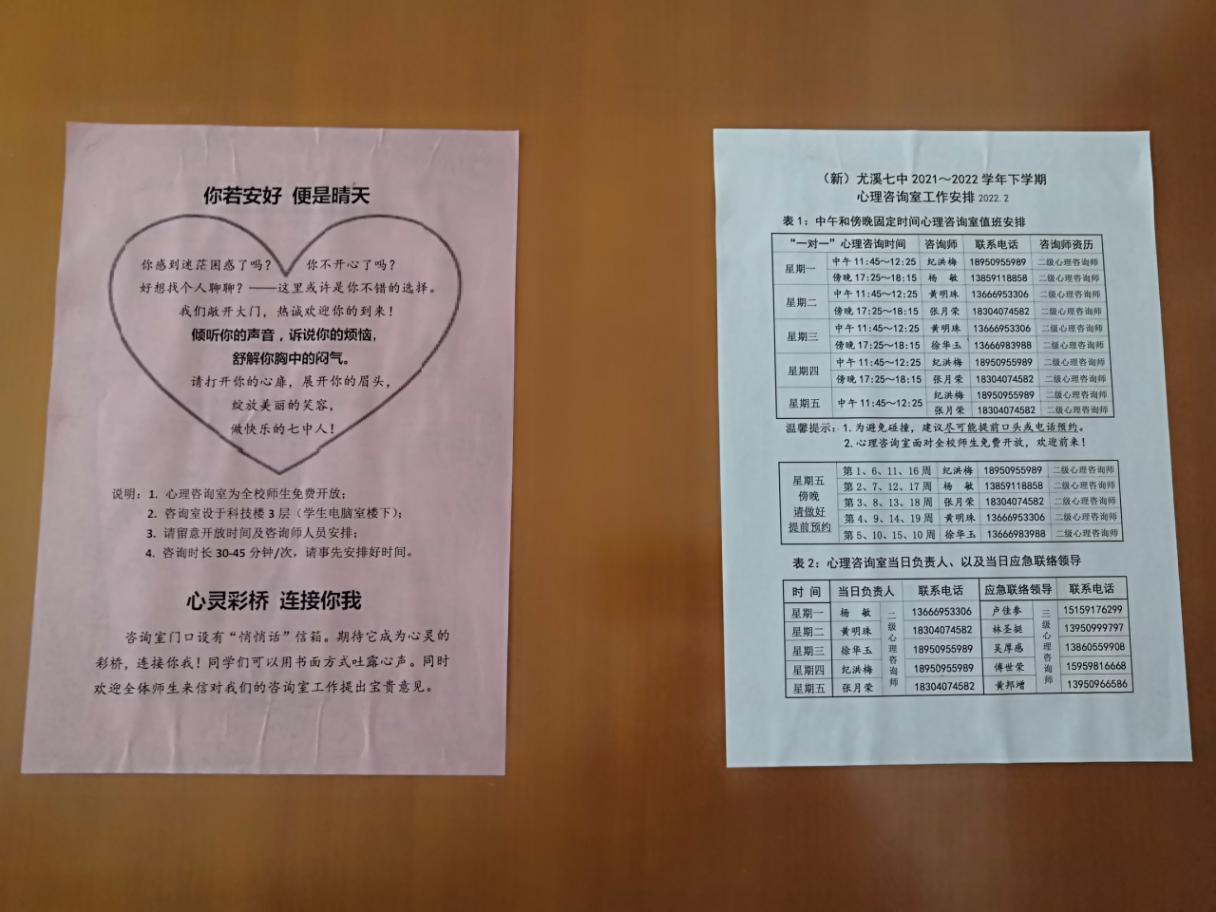 你若安好 便是晴天
你感到迷茫困惑了吗？ 你不开心了吗？
好想找个人聊聊？——这里或许是你不错的选择。
我们敞开大门，热诚欢迎你的到来！
倾听你的声音，诉说你的烦恼，
舒解你胸中的闷气。
请打开你的心扉，展开你的眉头，
绽放美丽的笑容，
做快乐的七中人！
说明：1. 心理咨询室为全校师生免费开放；
2. 咨询室设于科技楼 3 层（学生电脑室楼下）；
3. 请留意开放时间及咨询师人员安排；
4. 咨询时长 30-45 分钟/次，请事先安排好时间。
心灵彩桥 连接你我
咨询室门口设有“悄悄话”信箱。期待它成为心灵的
彩桥，连接你我！同学们可以用书面方式吐露心声。同时
欢迎全体师生来信对我们的咨询室工作提出宝贵意见。
（新）尤溪七中 2021～2022 学年下学期
心理咨询室工作安排 2022.2
表 1：中午和傍晚固定时间心理咨询室值班安排
“一对一”心理咨询时间 咨询师 联系电话 咨询师资历
星期一 中午 11:45～12:25 纪洪梅 18950955989 二级心理咨询师
傍晚 17:25～18:15 杨 敏 13859118858 二级心理咨询师
星期二 中午 11:45～12:25 黄明珠 13666953306 二级心理咨询师
傍晚 17:25～18:15 张月荣 18304074582 二级心理咨询师
星期三 中午 11:45～12:25 黄明珠 13666953306 二级心理咨询师
傍晚 17:25～18:15 徐华玉 13666983988 二级心理咨询师
星期四 中午 11:45～12:25 纪洪梅 18950955989 二级心理咨询师
傍晚 17:25～18:15 张月荣 18304074582 二级心理咨询师
星期五 中午 11:45～12:25 纪洪梅 18950955989 二级心理咨询师
张月荣 18304074582 二级心理咨询师
温馨提示：1.为避免碰撞，建议尽可能提前口头或电话预约。
2.心理咨询室面对全校师生免费开放，欢迎前来！
星期五 傍晚 请做好 提前预约 第 1、6、11、16 周 纪洪梅 18950955989 二级心理咨询师
第 2、7、12、17 周 杨 敏 13859118858 二级心理咨询师
第 3、8、13、18 周 张月荣 18304074582 二级心理咨询师
第 4、9、14、19 周 黄明珠 13666953306 二级心理咨询师
第 5、10、15、10 周 徐华玉 13666983988 二级心理咨询师
表 2：心理咨询室当日负责人、以及当日应急联络领导
时 间 当日负责人 联系电话 应急联络领导 联系电话
星期一 杨 敏 二级心理咨询师 13666953306 卢佳参 三级心理咨询师 15159176299
星期二 黄明珠 18304074582 林圣挺 13950999797
星期三 徐华玉 18950955989 吴厚感 13860559908
星期四 纪洪梅 18950955989 傅世荣 15959816668
星期五 张月荣 18304074582 黄邦增 13950966586